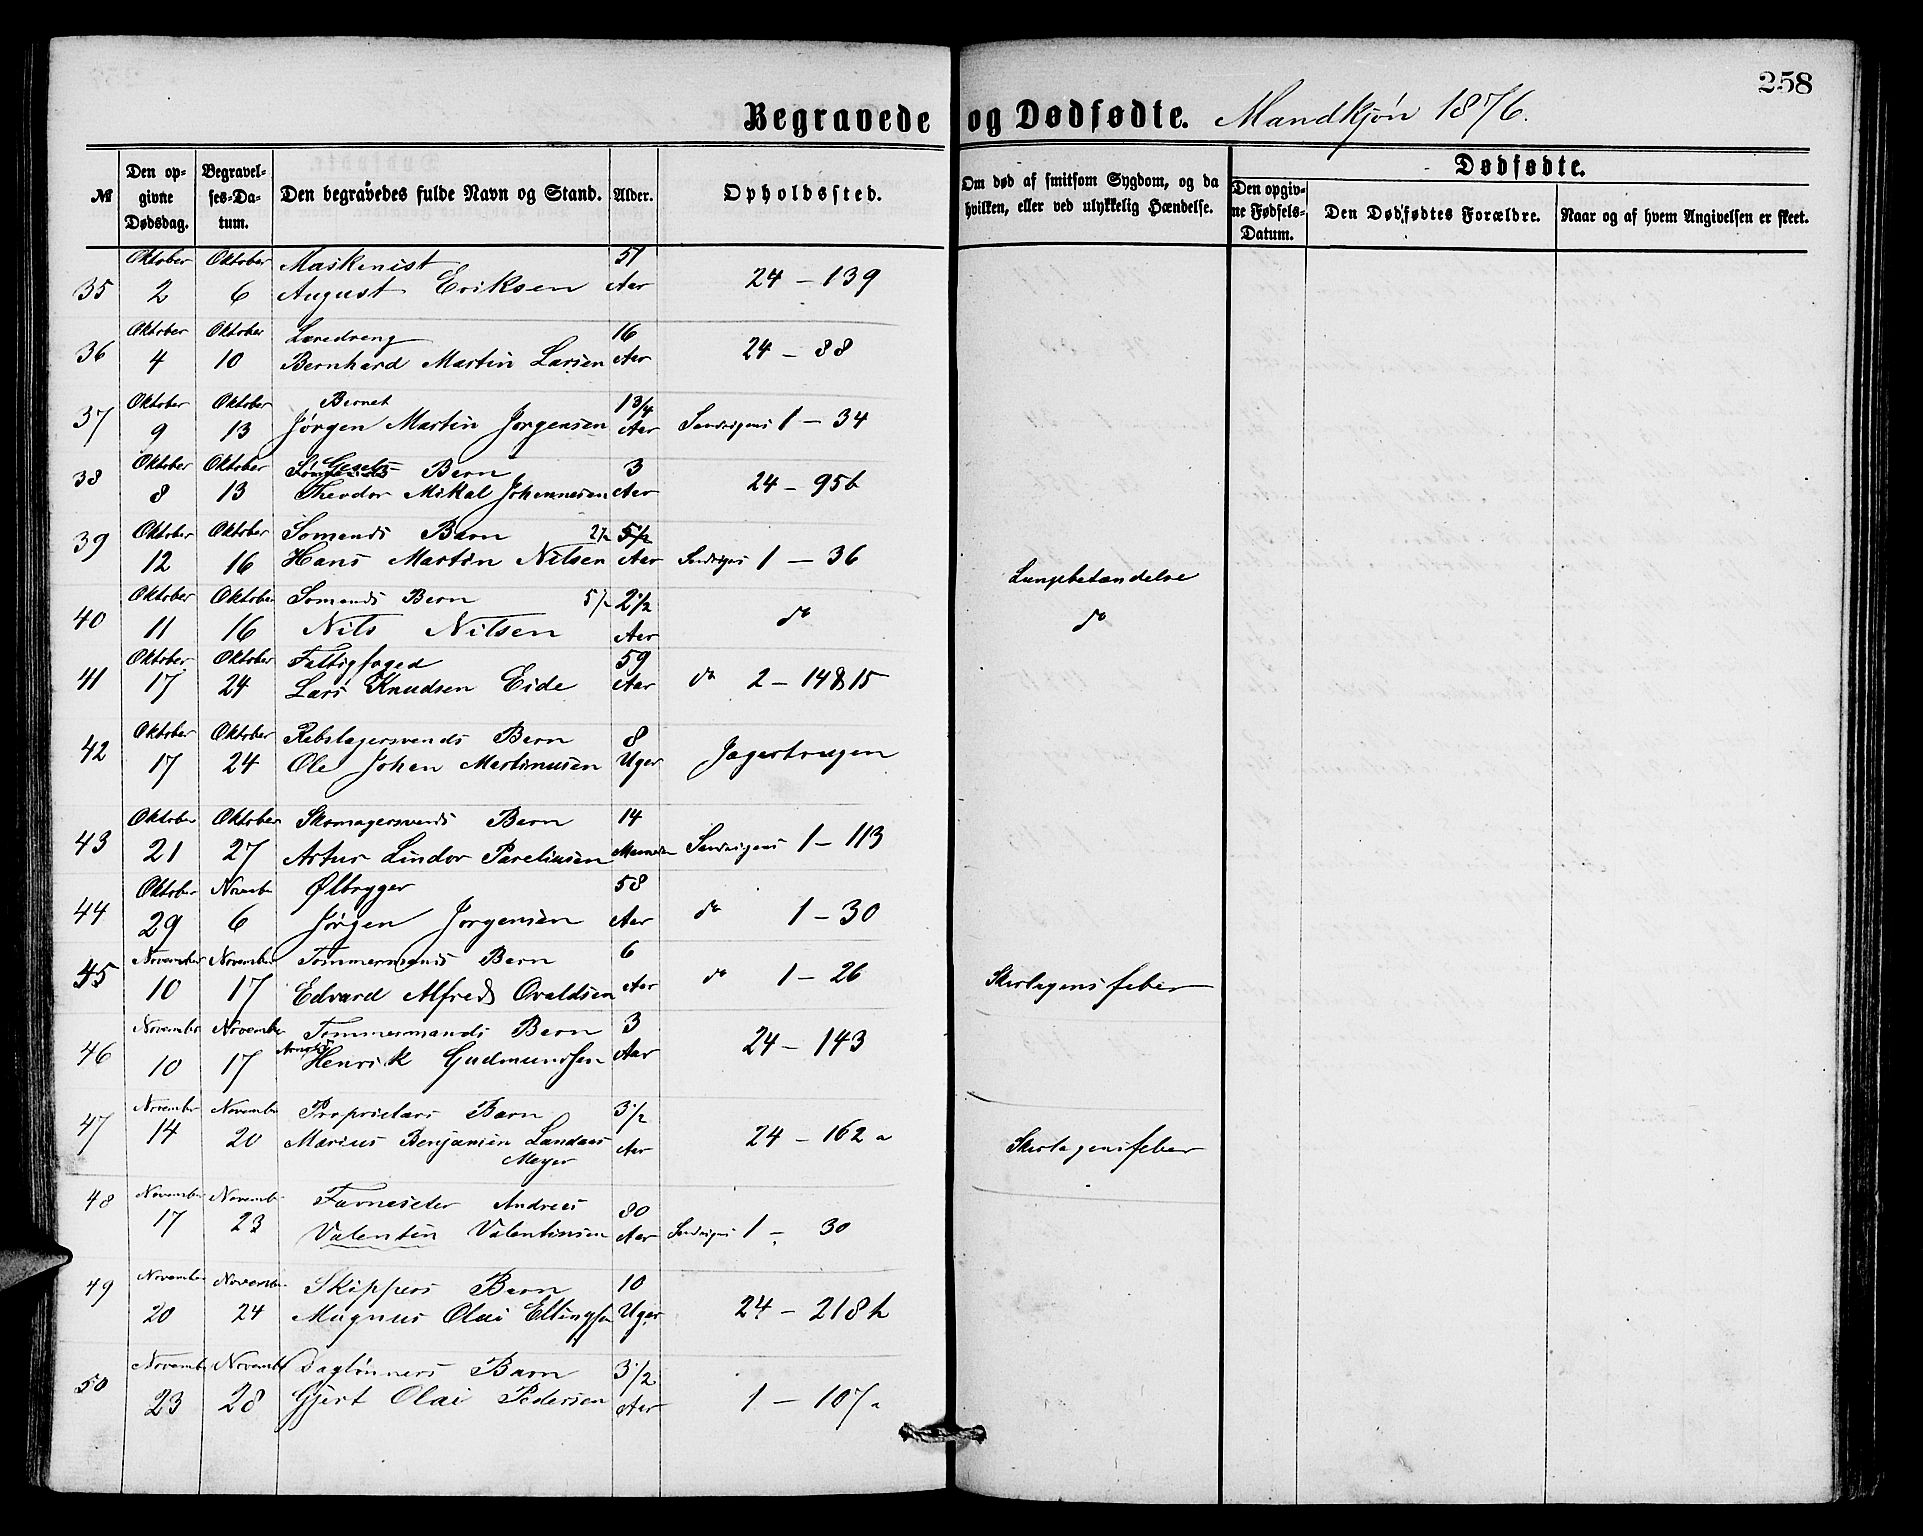 258
Begravede og Dødfødte. Mandkjøn 1876.
№ Den opgivne Dødsdag. Begravelses-Datum. Den begravedes fulde Navn og Stand. Alder. Opholdssted. Om død af smitsom Sygdom, og da hvilken, eller ved ulykkelig Hændelse. Dødfødte.
Den opgivne Fødsels-Datum. Den Dødfødtes Forældre. Naar og af hvem Angivelsen er skeet.
Oktober Oktober Maskinist 51
35 2 6 August Eriksen Aar 24 – 139
Oktober Oktober Læredreng 16
36 4 10 Bernhard Martin Larsen Aar 24 – 88
Oktober Oktober Barnet 1 3/4
37 9 13 Jørgen Martin Jørgensen Aar Sandvigens 1 – 34
Oktober Oktober Barn 3
38 8 13 Theodor Mikal Johannesen Aar 24 – 95b
Oktober Oktober Sømands Barn 2 1/2 5 1/2
39 12 16 Hans Martin Nilsen Aar Sandvigens 1 – 36 Lungebetændelse
Oktober Oktober Sømands Barn 5 1/2 2 1/2
40 11 16 Nils Nilsen Aar do do
Oktober Oktober Fattigfoged 59
41 17 24 Lars Knudsen Eide Aar do 2 – 14 & 15
Oktober Oktober Rebslagersvends Barn 8
42 17 24 Ole Johan Martinusen Uger Jagertrugen
Oktober Oktober Skomagersvends Barn 14
43 21 27 Artur Lindor Pareliusen Maaneder Sandvigens 1 – 113
Oktober Novembr Ølbrygger 58
44 29 6 Jørgen Jørgensen Aar do 1 – 30
November November Tømmermands Barn 6
45 10 17 Edvard Alfred Ovaldsen Aar do 1 – 26 Skarlagensfeber
November November Tømmermands Barn 3
46 10 17 Henrik Gudmundsen Aar 24 – 143
November November Proprietærs Barn 3 1/2
47 14 20 Marius Benjamin Landaas Aar 24 – 162 a Skarlagensfeber
Meyer
48 November November Farveseter Andreas 80
17 23 Valentin Valentinsen Aar Sandvigens 1 – 30
49 November November Skippers Barn 10
20 24 Magnus Olai Ellingsen Uger 24 – 218 h
November November Daglønners Barn 3 1/2
50 23 28 Gjert Olai Pedersen Aar 1 – 107 a